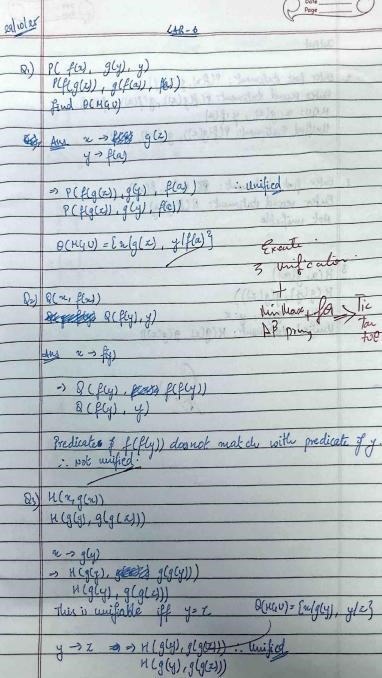 Date
Page
29/10/25
LAB-6
Q1) P( f(x), g(y), y)
P(f(g(z)), g(f(a)), f(a))
find θ(MGU)
Ans x → g(z)
y → f(a)
⇒ P(f(g(z)), g(y), f(a)) ∴ Unified
P(f(g(z)), g(y), f(a))
θ(MGU) = {x/g(z), y/f(a)}
Execute
3 unification
+
MinMax + f(x) → Tic
Tac
toe
AB pruning
Q2) Q(x, f(x))
Q(f(y), y)
Ans x → f(y)
⇒ Q(f(y), f(f(y))
Q(f(y), y)
Predicate f(f(y)) does not match with predicate of y
∴ not unified.
Q3) H(x, g(x))
H(g(y), g(g(z)))
x → g(y)
⇒ H(g(y), g(g(y)))
H(g(y), g(g(z)))
This is unifiable iff y=z θ(MGU) = {x/g(y), y/z}
y → z ⇒ H(g(y), g(g(z))) ∴ Unified
H(g(y), g(g(z)))